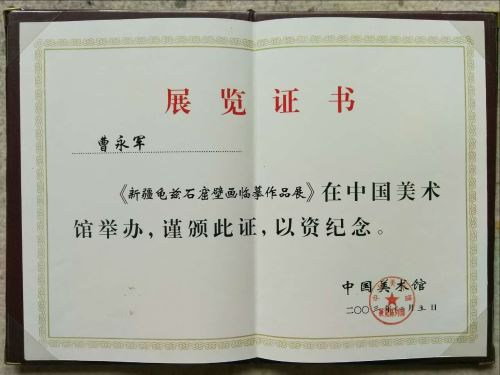 展览证书
曹永军
《新疆龟兹石窟壁画临摹作品展》在中国美术
馆举办,谨颁此证,以资纪念。
中国美术馆
二〇〇三年 月 日